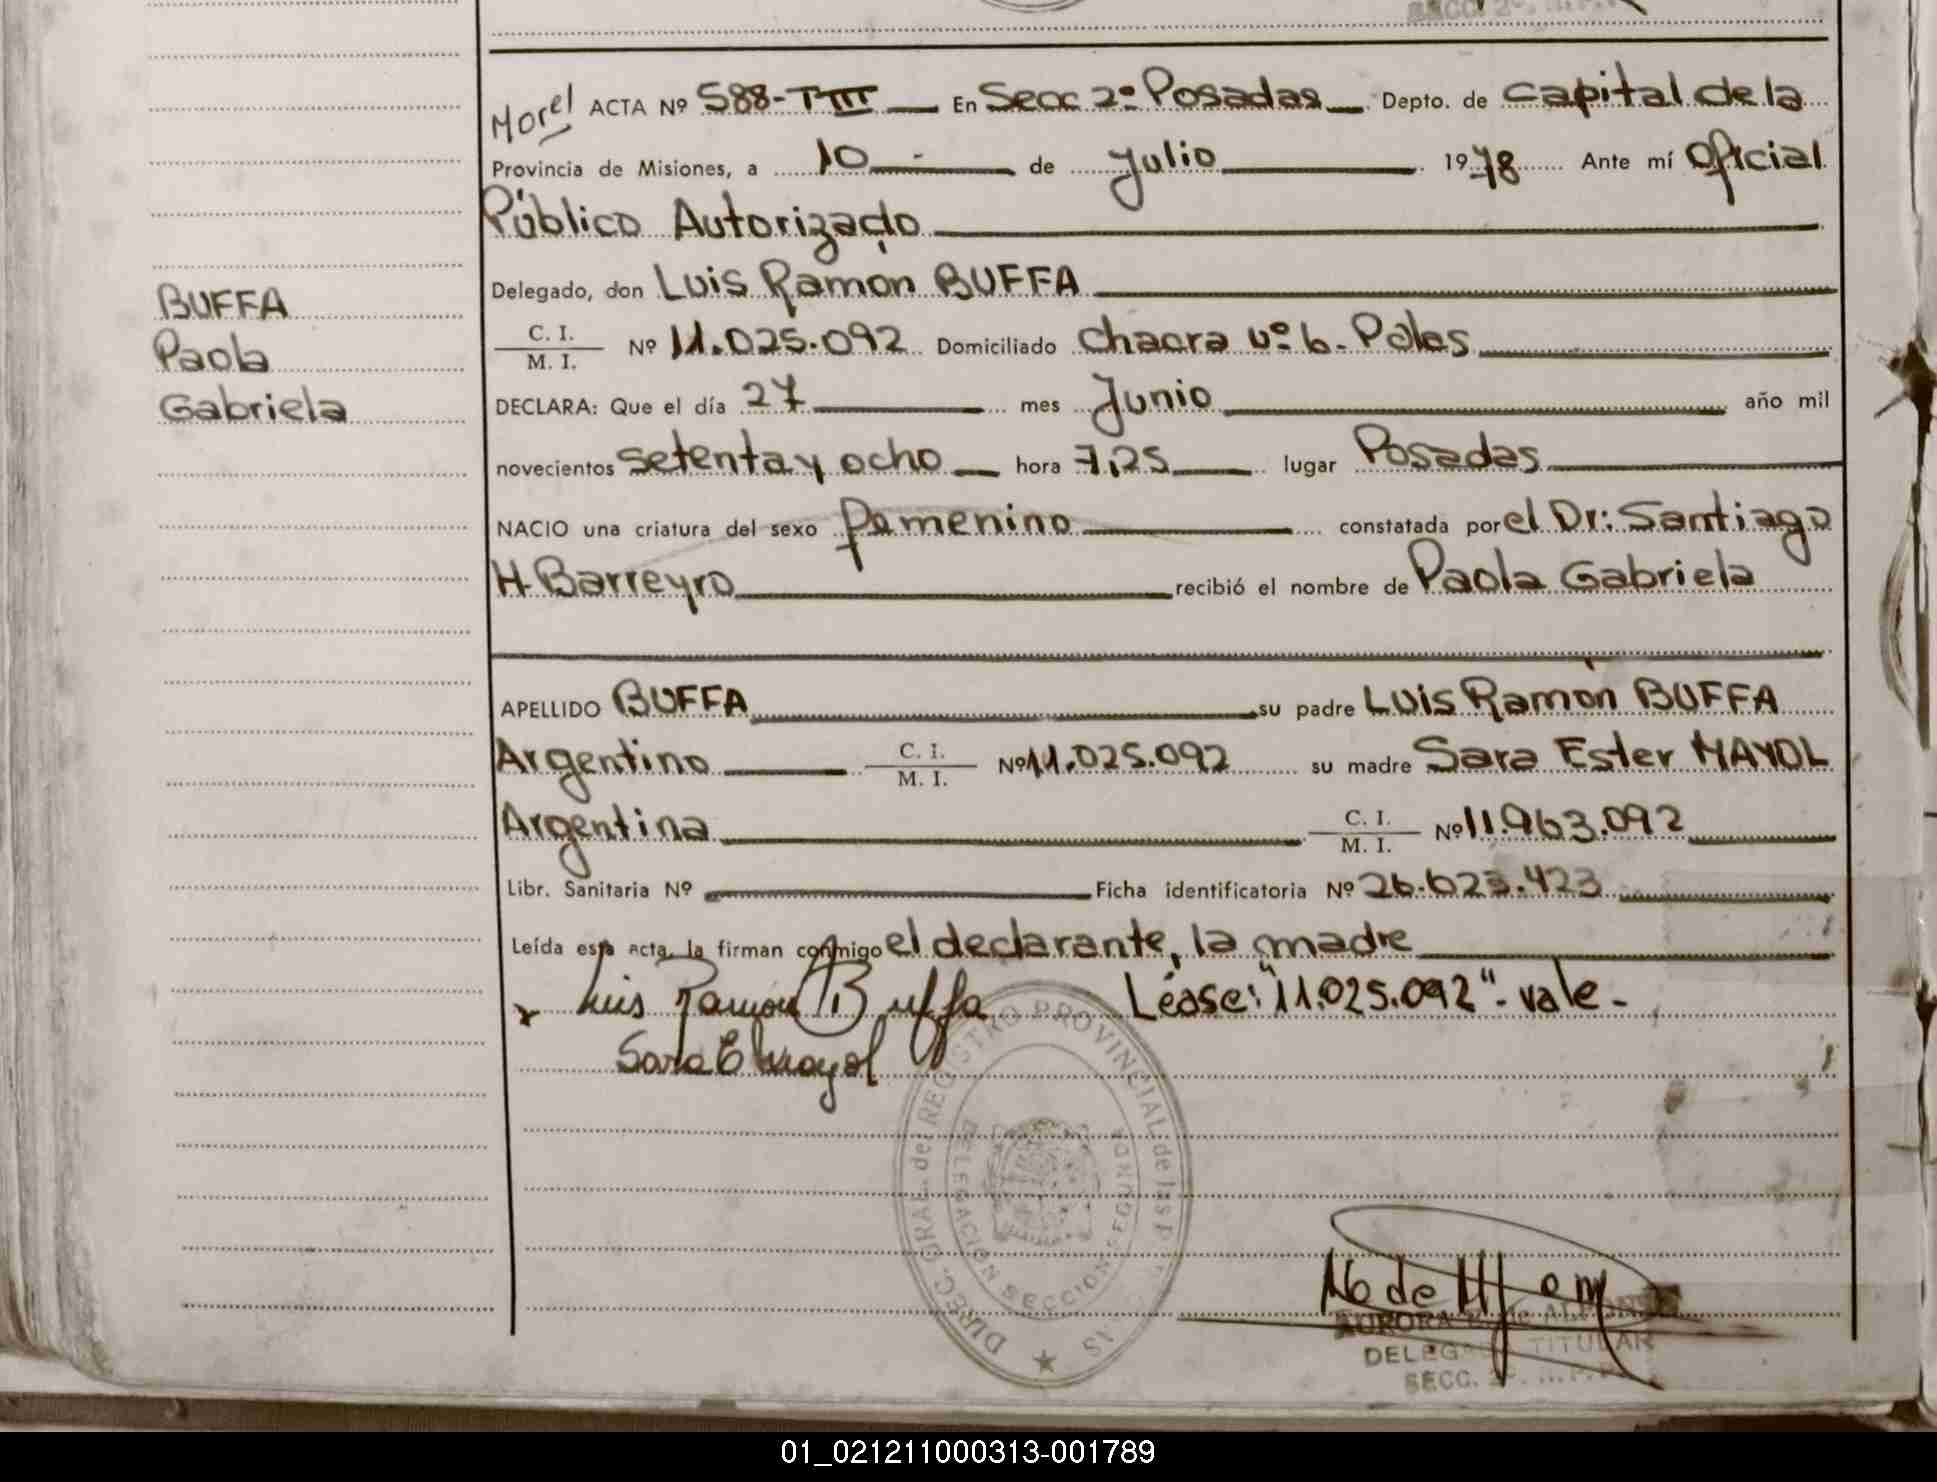 SECC. 2º.
Morel ACTA Nº 588-TIII En Secc 2º Posadas Depto. de Capital de la
Provincia de Misiones, a 10 de Julio 1978 Ante mí Oficial
Público Autorizado
Delegado, don Luis Ramon BUFFA
BUFFA
C. I.
M. I. Nº 11.025.092 Domiciliado Chacra nº 6. Pdas
Paola
DECLARA: Que el día 27 mes Junio año mil
Gabriela
novecientos setenta y ocho hora 7,25 lugar Posadas
NACIO una criatura del sexo femenino constatada por el Dr: Santiago
H. Barreyro recibió el nombre de Paola Gabriela
APELLIDO BUFFA su padre Luis Ramón BUFFA
Argentino C. I.
M. I. Nº 11.025.092 su madre Sara Ester MAYOL
Argentina C. I.
M. I. Nº 11.963.092
Libr. Sanitaria Nº Ficha identificatoria Nº 26.623.423
Leída esta acta, la firman conmigo el declarante, la madre
Luis Ramón Buffa Léase: "11.025.092" - vale -
Sara E Mayol
DIREC. GRAL. del REGISTRO PROVINCIAL de las P
DELEGACION SECCION SEGUNDA
AURORA de
DELEG TITULAR
SECC. 2º
01_021211000313-001789